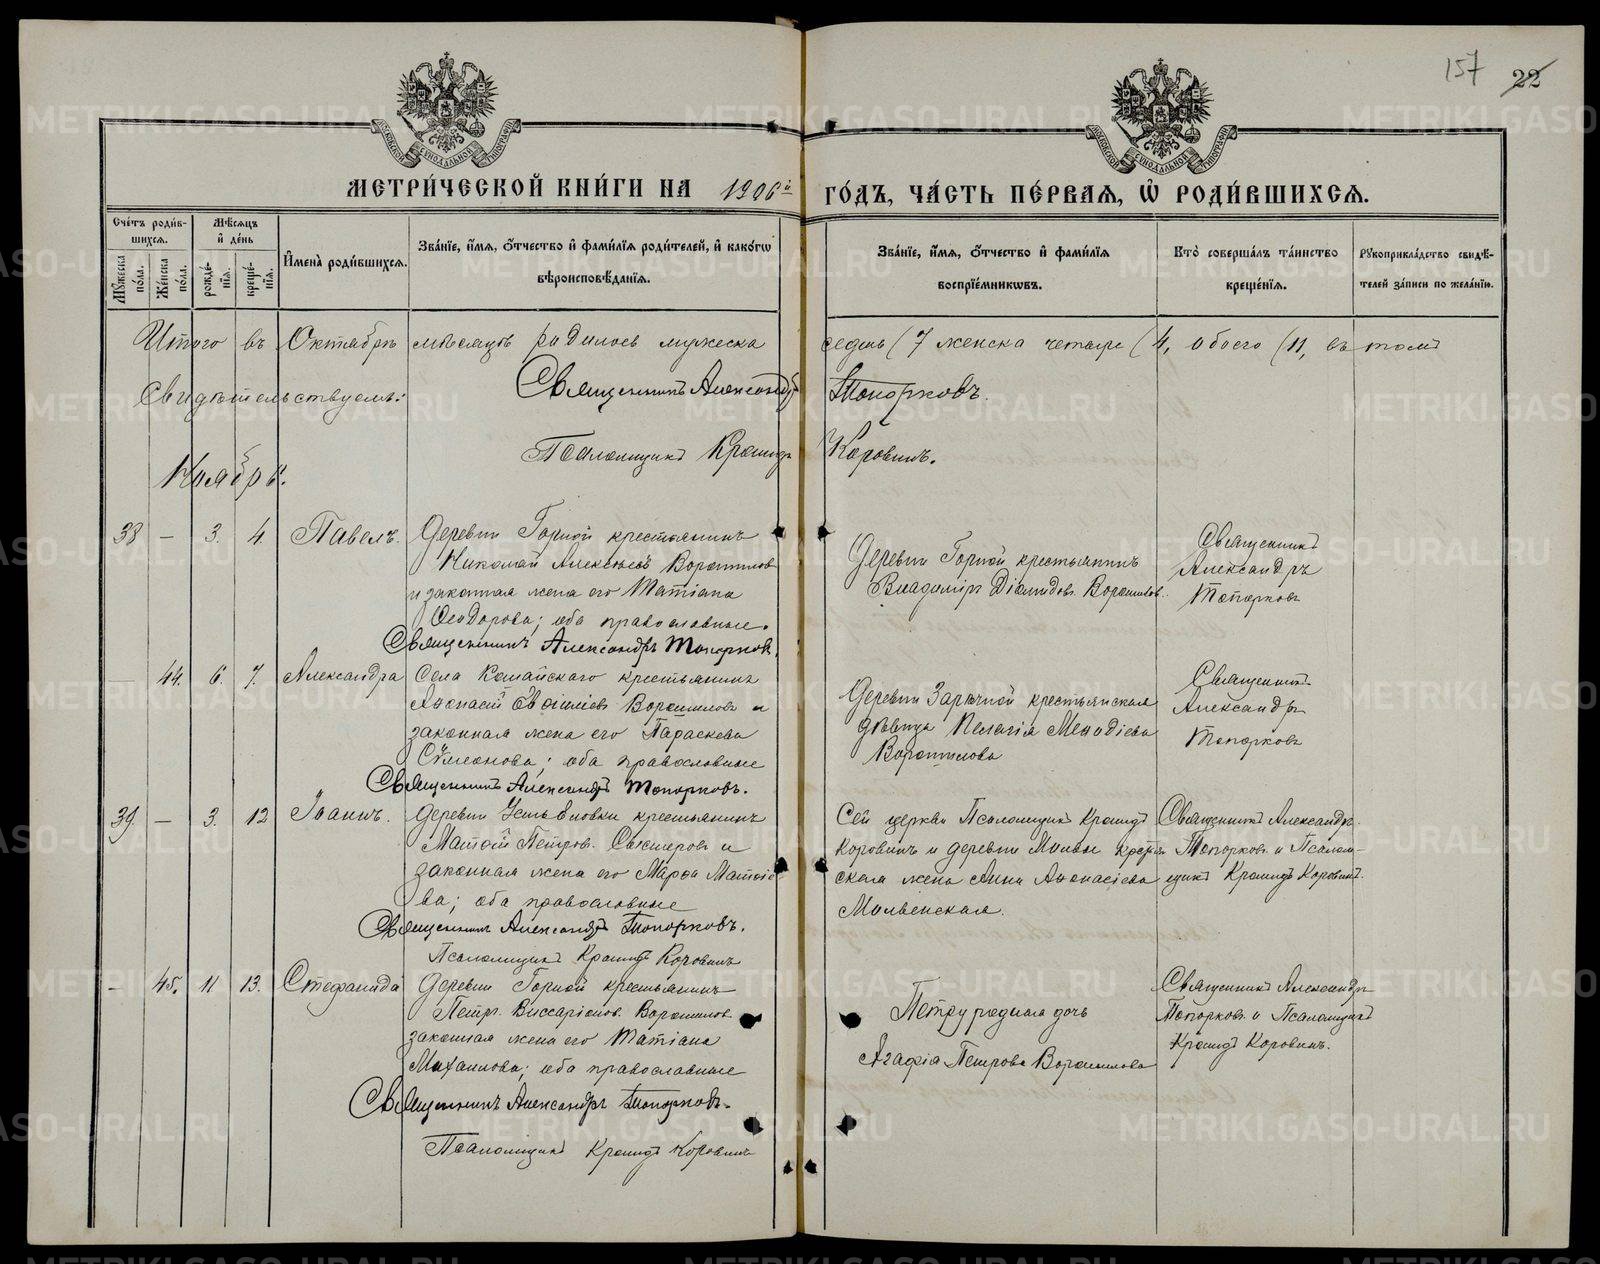 157 22
МОСКОВСКОЙ СѴНОДАЛЬНОЙ ТИПОГРАФІИ
МОСКОВСКОЙ СѴНОДАЛЬНОЙ ТИПОГРАФІИ
МЕТРИ́ЧЕСКОЙ КНИ́ГИ НА 1906й ГО́ДЪ, ЧА́СТЬ ПЕ́РВАЯ, Ѽ РОДИ́ВШИХСЯ.
Сче́тъ роди́в-
шихся.
Мѣ́сяцъ
и̂ де́нь
Мꙋ́жеска по́ла.
Же́нска по́ла.
рожде́-
нїя.
креще́-
нїя.
И҆мена̀ роди́вшихся.
Зва́нїе, и҆́мя, ѻ҆́тчество и҆ фами́лїя роди́телей, и҆ како́гѡ
вѣроисповѣ́данїя.
Зва́нїе, и҆́мя, ѻ҆́тчество и҆ фами́лїя
воспрїе́мникѡвъ.
Кто̀ соверша́лъ та́инство
креще́нїя.
Рꙋкоприкла́дство свидѣ́-
телей за́писи по жела́нїю.
Итого въ Октябрѣ мѣсяцѣ родилось мужеска седмь (7 женска четыре (4, обоего (11, въ томъ
Свидѣтельствуемъ: Священникъ Александръ Топорковъ.
Псаломщикъ Кронидъ Коровинъ.
Ноябрь.
38 — 3. 4. Павелъ.
Деревни Горной крестьянинъ
Николай Алексѣевъ Ворошиловъ
и законная жена его Татіана
Ѳеодорова; оба православные.
Священникъ Александръ Топорковъ.
Деревни Горной крестьянинъ
Владиміръ Діомидовъ Ворошиловъ.
Священникъ
Александръ
Топорковъ
— 44. 6. 7. Александра
Села крестьянинъ
Аѳанасій Евѳиміевъ Ворошиловъ и
законная жена его Параскева
Сѵмеонова; оба православные
Священникъ Александръ Топорковъ.
Деревни Зарѣчной крестьянская
дѣвица Пелагія Меѳодіева
Ворошилова
Священникъ
Александръ
Топорковъ
39. — 3. 12 Іоаннъ.
Деревни крестьянинъ
Матѳій Петровъ и
законная жена его Марѳа Матѳіе-
ва; оба православные
Священникъ Александръ Топорковъ.
Псаломщикъ Кронидъ Коровинъ
Сей церкви Псаломщикъ Кронидъ
Коровинъ и деревни крестьян-
ская жена Анна Аѳанасіева
Священникъ Александръ
Топорковъ и Псалом-
щикъ Кронидъ Коровинъ.
— 45. 11 13. Стефанида
Деревни Горной крестьянинъ
Петръ Виссаріоновъ Ворошиловъ
законная жена его Татіана
Михаилова; оба православные
Священникъ Александръ Топорковъ.
Псаломщикъ Кронидъ Коровинъ
Петру родная дочь
Агафія Петрова Ворошилова
Священникъ Александръ
Топорковъ и Псаломщикъ
Кронидъ Коровинъ.
METRIKI.GASO-URAL.RU